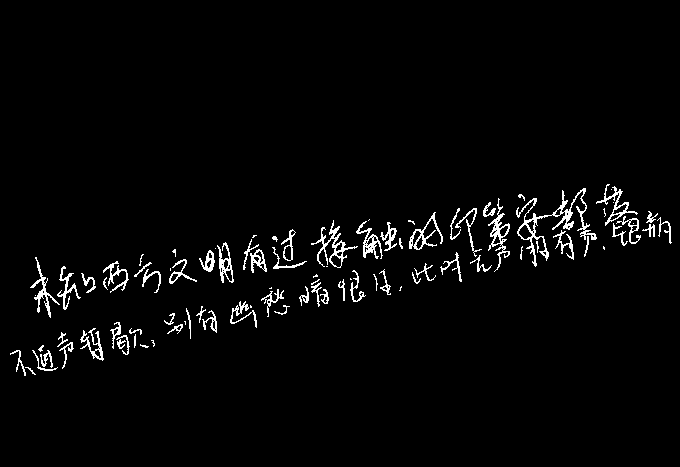 未知西方文明有过接触的印第安部落
不通声暂歇，别有幽愁暗恨生，此时无声胜有声，银瓶